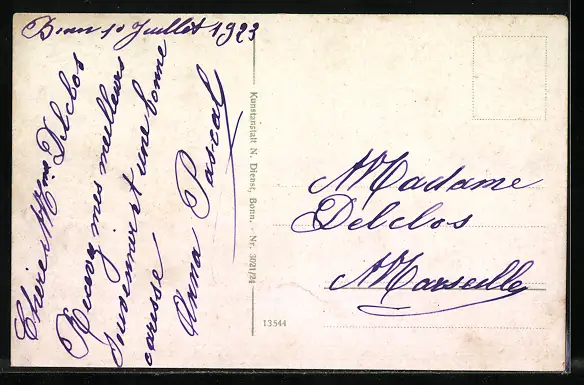 Bonn 10 Juillet 1923
Chère Mme Delclos
Recevez mes meilleurs
souvenirs et une bonne
caresse
Anna Pascal
Kunstanstalt N. Dienst, Bonn. - Nr. 3021/24
13544
Madame
Delclos
Marseille